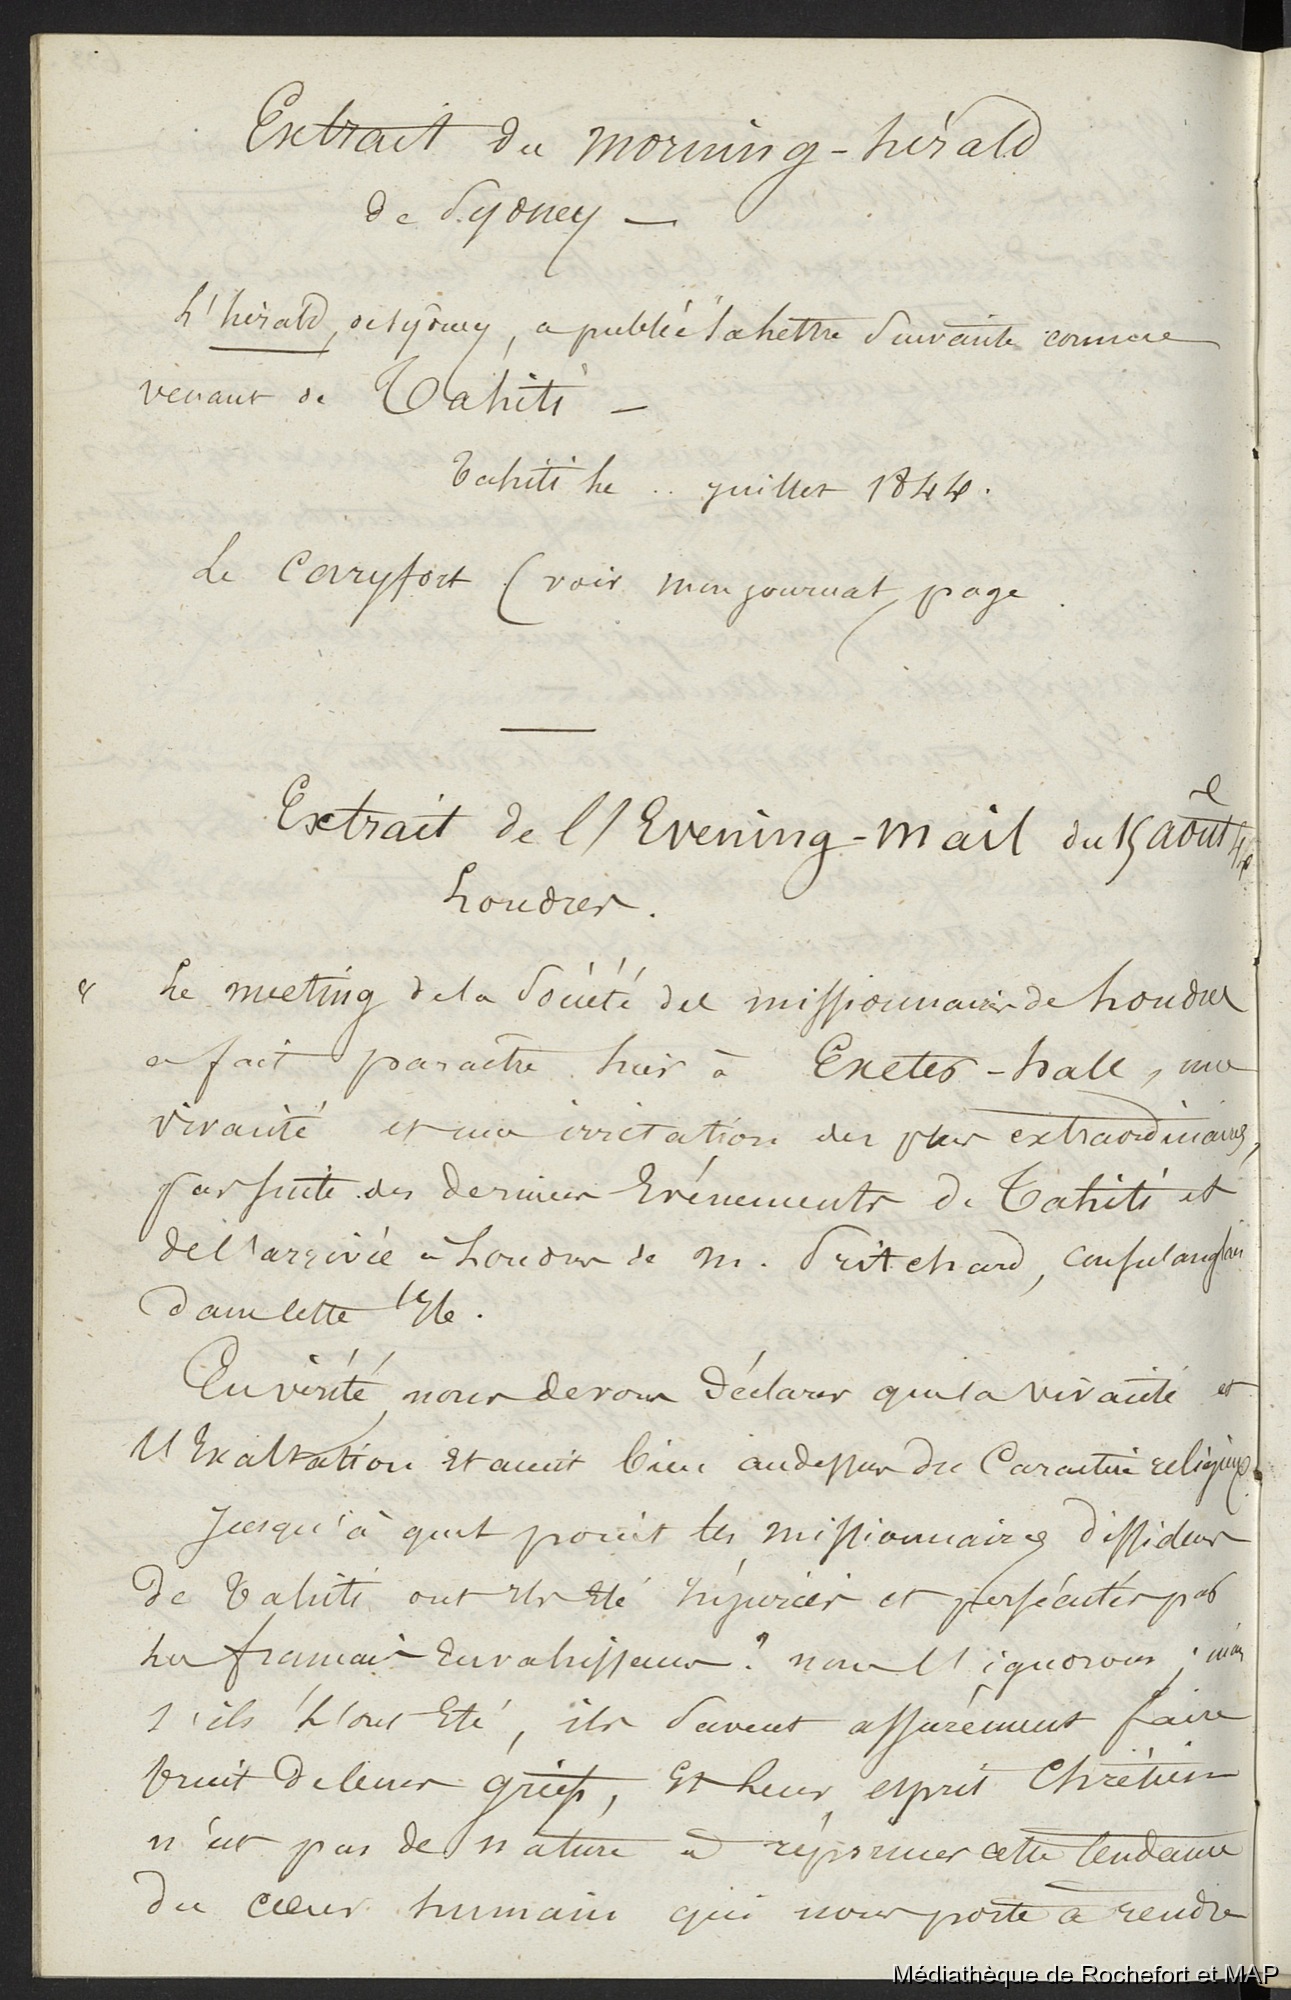 Extrait du morning-hérald
de Sydney —
L'hérald, de sydney, a publié la Lettre Suivante comme
venant de Tahiti —
Tahiti Le .. juillet 1844.
Le Carryfort (voir mon journal, page
Extrait de l'Evening-mail du 15 août 44
Londres.
Le meeting de la Société des missionnaires de Londres
a fait paraître hier à Exeter-hall, une
vivacité et une irritation des plus extraordinaires,
par suite des derniers Evénements de Tahiti et
de l'arrivée à Londres de M. Pritchard, Consul anglais
dans cette Isle.
En vérité, nous devons déclarer que la vivacité et
l'Exaltation Etaient bien au dessus du Caractère religieux.
Jusqu'à quel point les missionnaires dissidens
de Tahiti ont ils Eté injuriés et persécutés par
les français Envahisseurs? nous l'ignorons; mais
s'ils L'ont Eté, ils Savent assurément faire
bruit de leurs griefs, Et Leur esprit Chrétien
n'est pas de nature à réprimer cette tendance
du cœur humain qui nous porte à rendre
Médiathèque de Rochefort et MAP